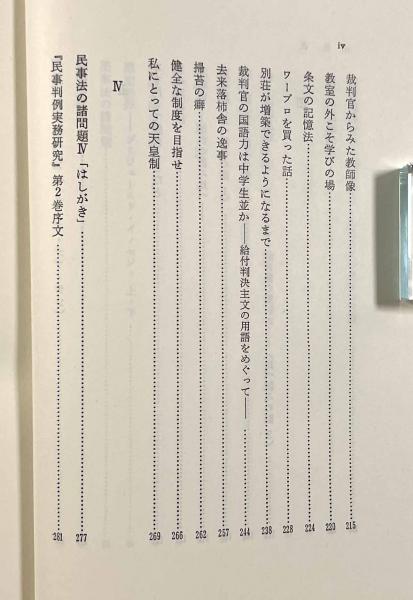 iv
裁判官からみた教師像……215
教室の外こそ学びの場……220
条文の記憶法……224
ワープロを買った話……228
別荘が増築できるようになるまで……238
裁判官の国語力は中学生並か――給付判決主文の用語をめぐって――……244
去来落柿舎の逸事……257
掃苔の癖……262
健全な制度を目指せ……266
私にとっての天皇制……269
Ⅳ
民事法の諸問題Ⅳ「はしがき」……277
『民事判例実務研究』第2巻序文……281